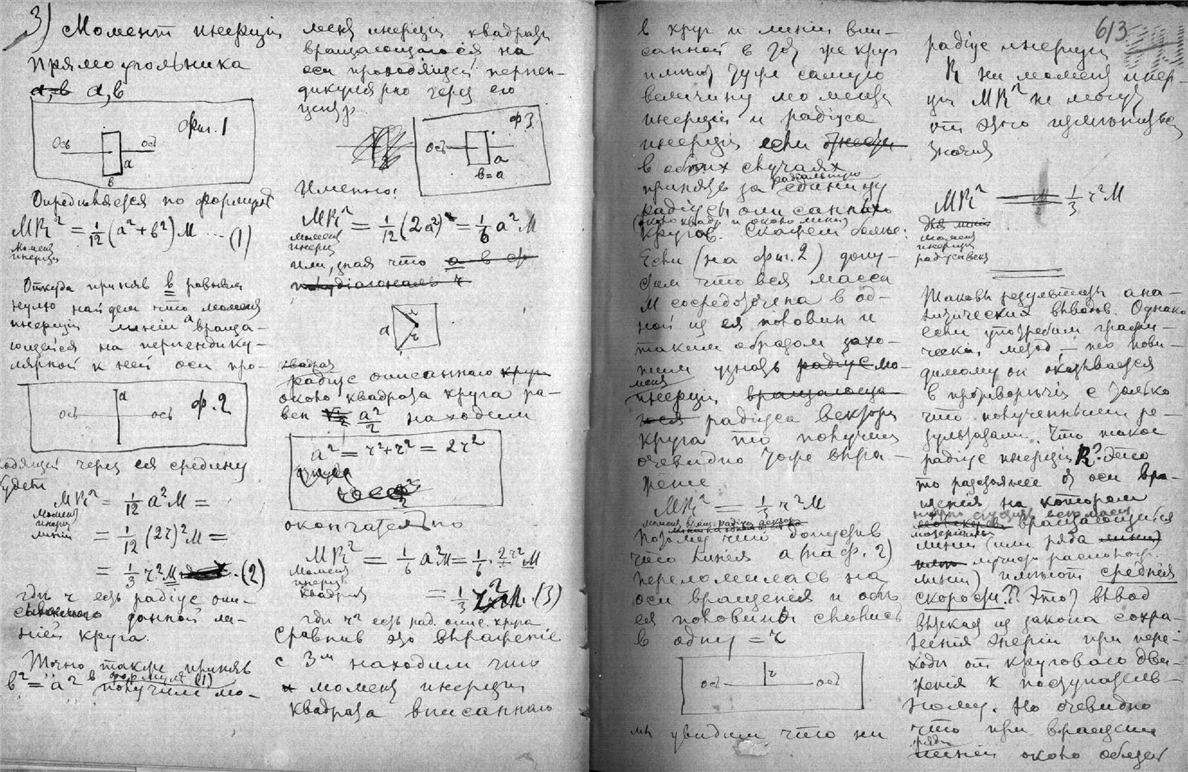 3) Момент инерции
прямоугольника
a, b
Фиг. 1
Ось ось
a
b
Определяется по формуле
MR² = 1/12 (a² + b²) M ... (1)
момент
инерции
Откуда приняв b равным
нулю найдем что момент
инерции линии a враща-
ющейся на перпендику-
лярной к ней оси про-
a
ф. 2
ось ось
одящей через ея средину
будет
MR² = 1/12 a² M =
момент
инерц
линии
= 1/12 (2r)² M =
= 1/3 r² M . (2)
где r есть радиус опи-
данной ли-
нией круга.
Точно также приняв
в формуле (1)
b² = a² получим мо-
мент инерции квадрата
вращающагося на
оси проводящей перпен-
дикулярно через его
центр.
ф 3.
ось
a
b=a
Именно:
MR² = 1/12 (2a²) = 1/6 a² M
момент
инерц
или, зная что
a
r
r
квадрат
радиус описаннаго
около квадрата круга ра-
вен a²/2 находим
a² = r² + r² = 2r²
окончательно
MR² = 1/6 a² M = 1/6 · 2r² M
момент
инерц
квадрата
= 1/3 r² M. (3)
где r² есть рад. опис. круга
Сравнив это выражение
с 3м находим что
момент инерции
квадрата вписаннаго
в круг и линии впи-
санной в тот же круг
имеют туже самую
величину момента
инерции и радиуса
инерции если
в обоих случаях
радиальную
принять за единицу
радиусы описанных
(около квадр. и около линии)
кругов. Скажем более:
Если (на фиг. 2) допу-
стим что вся масса
M сосредоточена в од-
ной из ея половин и
таким образом захо-
тим узнать мо-
мент
инерции
радиуса вектора
круга то получим
очевидно тоже выра-
жение
MR² = 1/3 r² M
Потому что допустив
что линия a (на ф. 2)
переломилась на
оси вращения и обе
ея половины слились
в одну = r
r
ось ось
мы увидим что ни
613
радиус инерции
R ни момент инер-
ции MR² не могут
от этого изменить
значия
MR² = 1/3 r² M
момент
инерции
радиуса век
Таковы результаты ана-
литических выводов. Однако
если употребим графи-
ческий метод — то пови-
димому он окажется
в противоречии с только
что полученными ре-
зультатами. Что такое
радиус инерции R? Это
то разстояние от оси вра-
щения на котором
вращающейся
материальн
линии (или ряда
линий) имеют среднюю
скорость?? Этот вывод
вытекая из закона сохра-
нения энергии при пере-
ходе от кругового дви-
жения к поступатель-
ному. Но очевидно
что при вращении
ряда
линий около общей